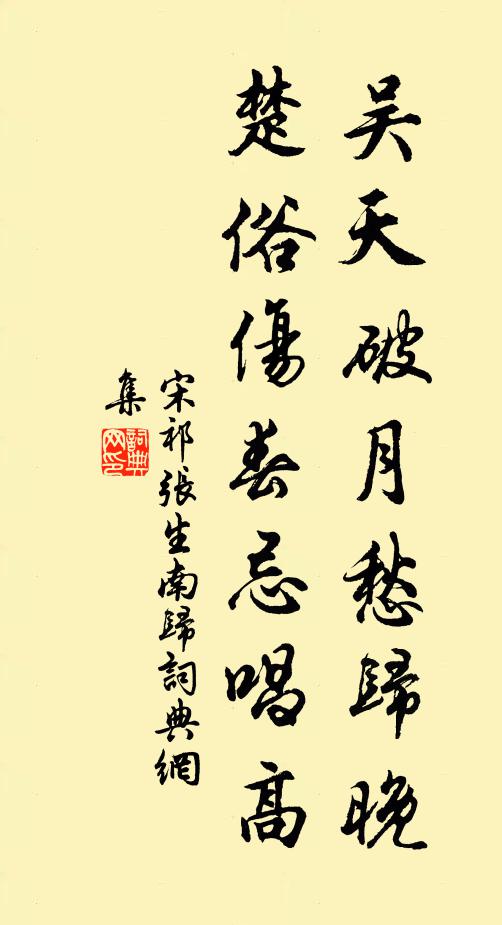 吴天破月愁歸晚
楚俗傷春忌唱高
宋祁張生南歸詞典網
集
詞典
网印